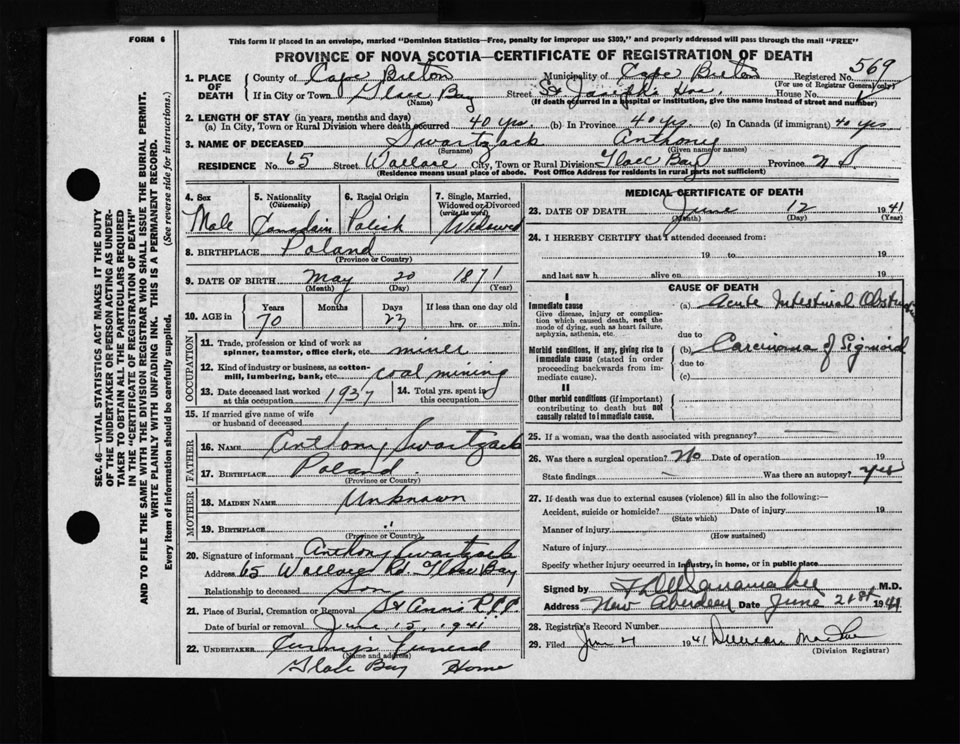 FORM 6
This form if placed in an envelope, marked "Dominion Statistics—Free, penalty for improper use $300," and properly addressed will pass through the mail "FREE"
PROVINCE OF NOVA SCOTIA—CERTIFICATE OF REGISTRATION OF DEATH
SEC. 46—VITAL STATISTICS ACT MAKES IT THE DUTY
OF THE UNDERTAKER OR PERSON ACTING AS UNDER-
TAKER TO OBTAIN ALL THE PARTICULARS REQUIRED
IN THE "CERTIFICATE OF REGISTRATION OF DEATH"
AND TO FILE THE SAME WITH THE DIVISION REGISTRAR WHO SHALL ISSUE THE BURIAL PERMIT.
WRITE PLAINLY WITH UNFADING INK. THIS IS A PERMANENT RECORD.
Every item of information should be carefully supplied. (See reverse side for instructions.)
1. PLACE OF DEATH County of Cape Breton Municipality of Cape Breton Registered No. 569
(For use of Registrar General only)
If in City or Town Glace Bay Street St. Joseph's Hos. House No.
(Name) (If death occurred in a hospital or institution, give the name instead of street and number)
2. LENGTH OF STAY (in years, months and days)
(a) In City, Town or Rural Division where death occurred 40 yrs. (b) In Province 40 yrs. (c) In Canada (if immigrant) 40 yrs
3. NAME OF DECEASED Swartzack Anthony
(Surname) (Given name or names)
RESIDENCE No. 65 Street Wallace City, Town or Rural Division Glace Bay Province N S
(Residence means usual place of abode. Post Office Address for residents in rural parts not sufficient)
4. Sex Male
5. Nationality (Citizenship) Canadain
6. Racial Origin Polish
7. Single, Married, Widowed or Divorced (write the word) Widowed
8. BIRTHPLACE Poland
(Province or Country)
9. DATE OF BIRTH May 20 1871
(Month) (Day) (Year)
10. AGE in Years 70 Months Days 23 If less than one day old hrs. or min.
OCCUPATION
11. Trade, profession or kind of work as spinner, teamster, office clerk, etc. miner
12. Kind of industry or business, as cotton-mill, lumbering, bank, etc. coal mining
13. Date deceased last worked at this occupation 1937 14. Total yrs. spent in this occupation.
15. If married give name of wife or husband of deceased
FATHER
16. NAME Anthony Swartzack
17. BIRTHPLACE Poland
(Province or Country)
MOTHER
18. MAIDEN NAME Unknown
19. BIRTHPLACE "
(Province or Country)
20. Signature of informant Anthony Swartzack
Address 65 Wallace Rd. Glace Bay
Relationship to deceased Son
21. Place of Burial, Cremation or Removal St Anns
Date of burial or removal June 15, 1941
22. UNDERTAKER Funeral
(Name and address)
Glace Bay Home
MEDICAL CERTIFICATE OF DEATH
23. DATE OF DEATH June 12 1941
(Month) (Day) (Year)
24. I HEREBY CERTIFY that I attended deceased from:
19 to 19
and last saw h alive on 19
CAUSE OF DEATH
I
Immediate cause
Give disease, injury or complication which caused death, not the mode of dying, such as heart failure, asphyxia, asthenia, etc.
(a) Acute Intestinal Obstruction
due to
Morbid conditions, if any, giving rise to immediate cause (stated in order proceeding backwards from immediate cause).
(b) Carcinoma of Sigmoid
due to
(c)
II
Other morbid conditions (if important) contributing to death but not causally related to immediate cause.
25. If a woman, was the death associated with pregnancy?
26. Was there a surgical operation? No Date of operation 19
State findings Was there an autopsy? Yes
27. If death was due to external causes (violence) fill in also the following:—
Accident, suicide or homicide? Date of injury 19
(State which)
Manner of injury
(How sustained)
Nature of injury
Specify whether injury occurred in industry, in home, or in public place
Signed by M.D.
Address New Aberdeen Date June 21st 1941
28. Registrar's Record Number
29. Filed 1941 Duncan
(Division Registrar)